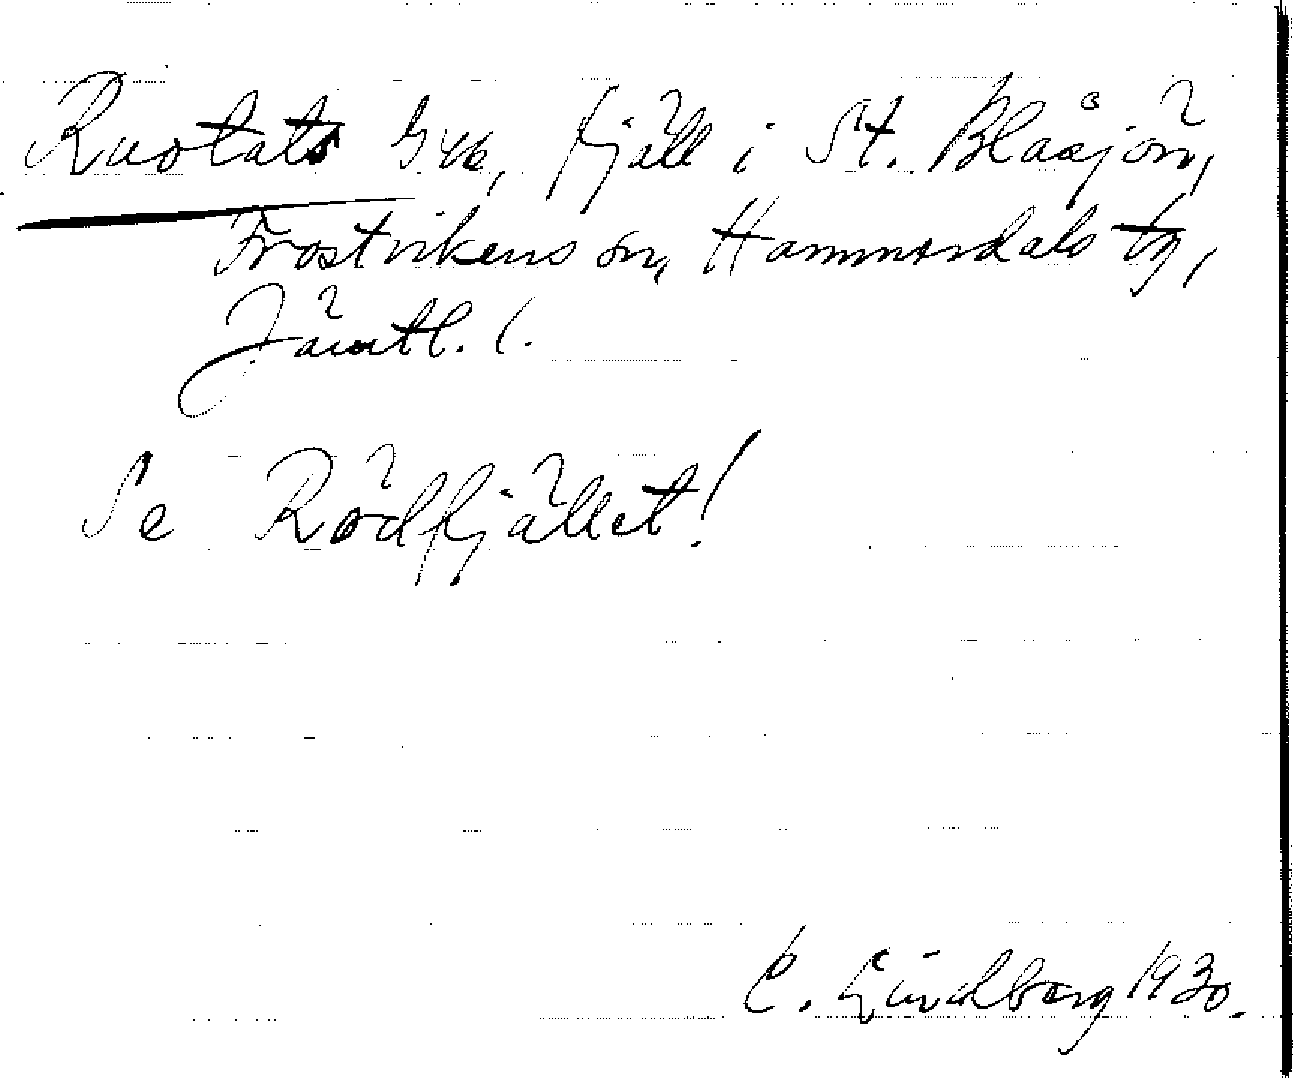 Ruotats 946, fjäll i St. Blåsjön,
Frostvikens sn, Hammerdals tg,
Jämtl. l.
Se Rödfjället!
C. Lindberg 1930.